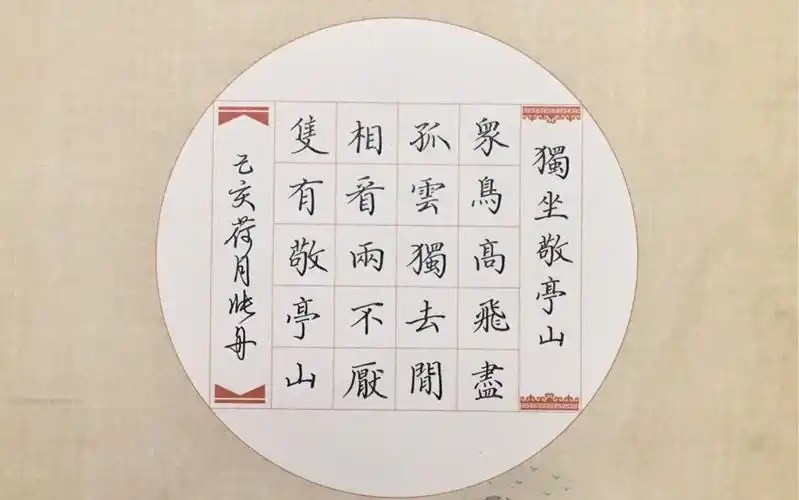 獨坐敬亭山
衆鳥高飛盡
孤雲獨去閒
相看兩不厭
隻有敬亭山
己亥荷月